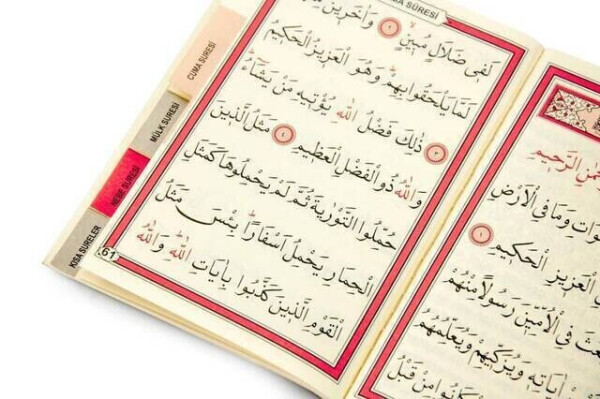 مٰنِ الرَّحِيمِ
وَاتِ وَمَا فِي الْاَرْضِ
الْعَزِيزِ الْحَكِيمِ ١
عَثَ فِي الْاُمِّيّنَ رَسُولًا مِنْهُمْ
اٰيَاتِهِ وَيُزَكِّيهِمْ وَيُعَلِّمُهُمُ
كَانُوا مِنْ قَبْلُ
MA SÛRESİ
لَفِي ضَلَالٍ مُبِينٍ ٢ وَاٰخَرِينَ مِنْهُمْ
لَمَّا يَلْحَقُوا بِهِمْ وَهُوَ الْعَزِيزُ الْحَكِيمُ
٣ ذٰلِكَ فَضْلُ اللّٰهِ يُؤْتِيهِ مَنْ يَشَاءُ
وَاللّٰهُ ذُو الْفَضْلِ الْعَظِيمِ ٤ مَثَلُ الَّذِينَ
حُمِّلُوا التَّوْرٰيةَ ثُمَّ لَمْ يَحْمِلُوهَا كَمَثَلِ
الْحِمَارِ يَحْمِلُ اَسْفَارًا بِئْسَ مَثَلُ
الْقَوْمِ الَّذِينَ كَذَّبُوا بِاٰيَاتِ اللّٰهِ وَاللّٰهُ
61
CUMA SURESİ
MÜLK SURESİ
NEBE SURESİ
KISA SURELER